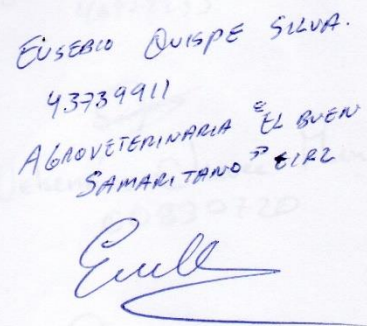 EUSEBIO QUISPE SILVA.
43739911
AGROVETERINARIA "EL BUEN
SAMARITANO" EIRL